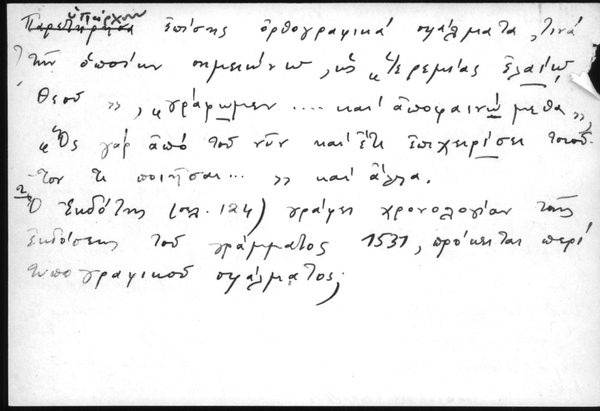 ὑπάρχουν
Παρετήρησα ἐπίσης ὀρθογραφικά σφάλματα, τινά
τῶν ὁποίων σημειώνω, ὡς « Ἱερεμίας ἐλαίῳ
Θεοῦ », « γράφωμεν .... καί ἀποφαινώμεθα »,
« Ὅς γάρ ἀπό τοῦ νῦν καί ἔτι ἐπιχειρίσει τοιοῦ-
τον τι ποιῆσαι... » καί ἄλλα.
2) Ὁ Ἐκδότης (σελ. 124) γράφει χρονολογίαν τῆς
ἐκδόσεως τοῦ γράμματος 1531, πρόκειται περί
τυπογραφικοῦ σφάλματος;